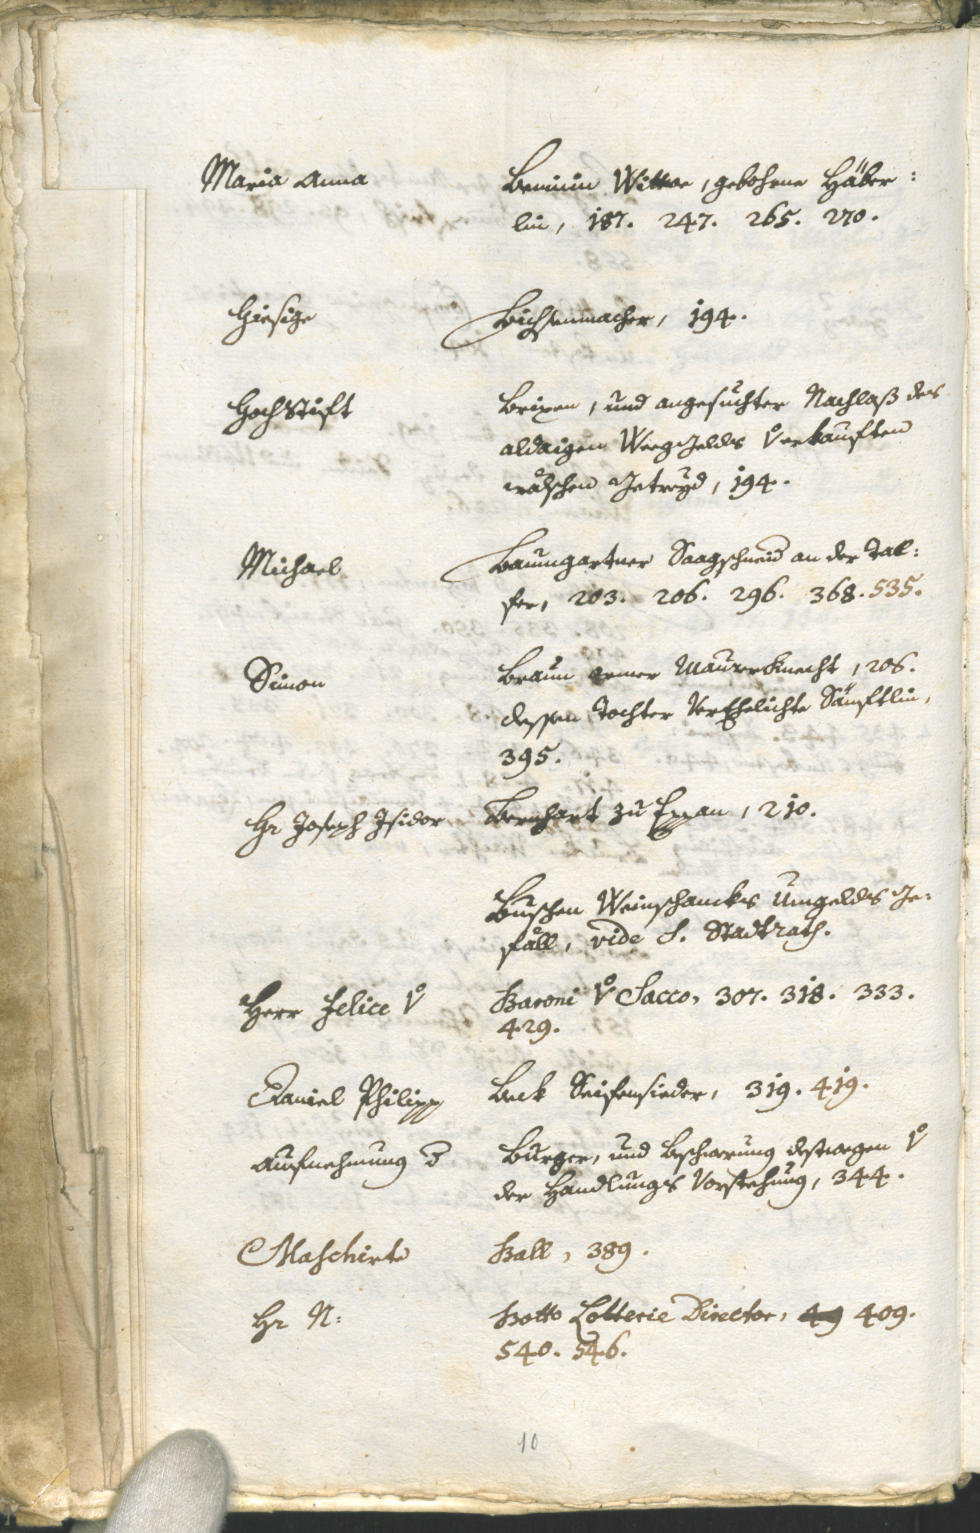 Maria Anna Beninin Wittwe, gebohrne Häber:
lin, 187. 247. 265. 270.
Hiesige Bichsenmacher, 194.
HochStift Brixen, und angesuchter Nachlaß des
aldaigen Weeggelds verkauften
wälschen Getreyd, 194.
Michael Baumgartner Saagschneid an der Tal:
fer, 203. 206. 296. 368. 535.
Simon Braun armer Maurerknecht, 206.
dessen Tochter Verehelichte Sänftlin,
395.
Hr Joseph Isidor Bernhart zu Eppan, 210.
Buschen Weinschancks Umgelds Ge:
fäll, vide S. Stadtrath.
Herr Felice v Baroni v Sacco, 307. 318. 333.
429.
Daniel Philipp Beck Seifensieder, 319. 419.
Aufnehmung d Burger, und Beschwerung destwegen v
der Handlungs Vorstehung, 344.
Maschirte Ball, 389.
Hr N: Botto Lotterie Director, 49 409.
540. 546.
10